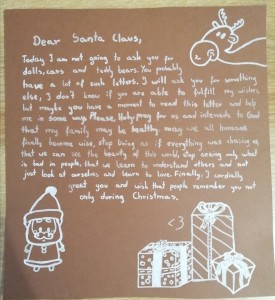 Dear Santa Claus,
Today I am not going to ask you for
dolls, cars and teddy bears. You probably
have a lot of such letters. I will ask you for something
else, I don't know if you are able to fulfill my wishes,
but maybe you have a moment to read this letter and help
me in some way. Please, Holy, pray for us and intercede to God
that my family may be healthy, may we all humans
finally become wise, stop living as if everything was chasing us,
that we can see the beauty of this world, stop seeing only what
is bad in people, that we learn to understand others and not
just look at ourselves and learn to love. Finally, I cordially
greet you and wish that people remember you not
only during Christmas.
<3